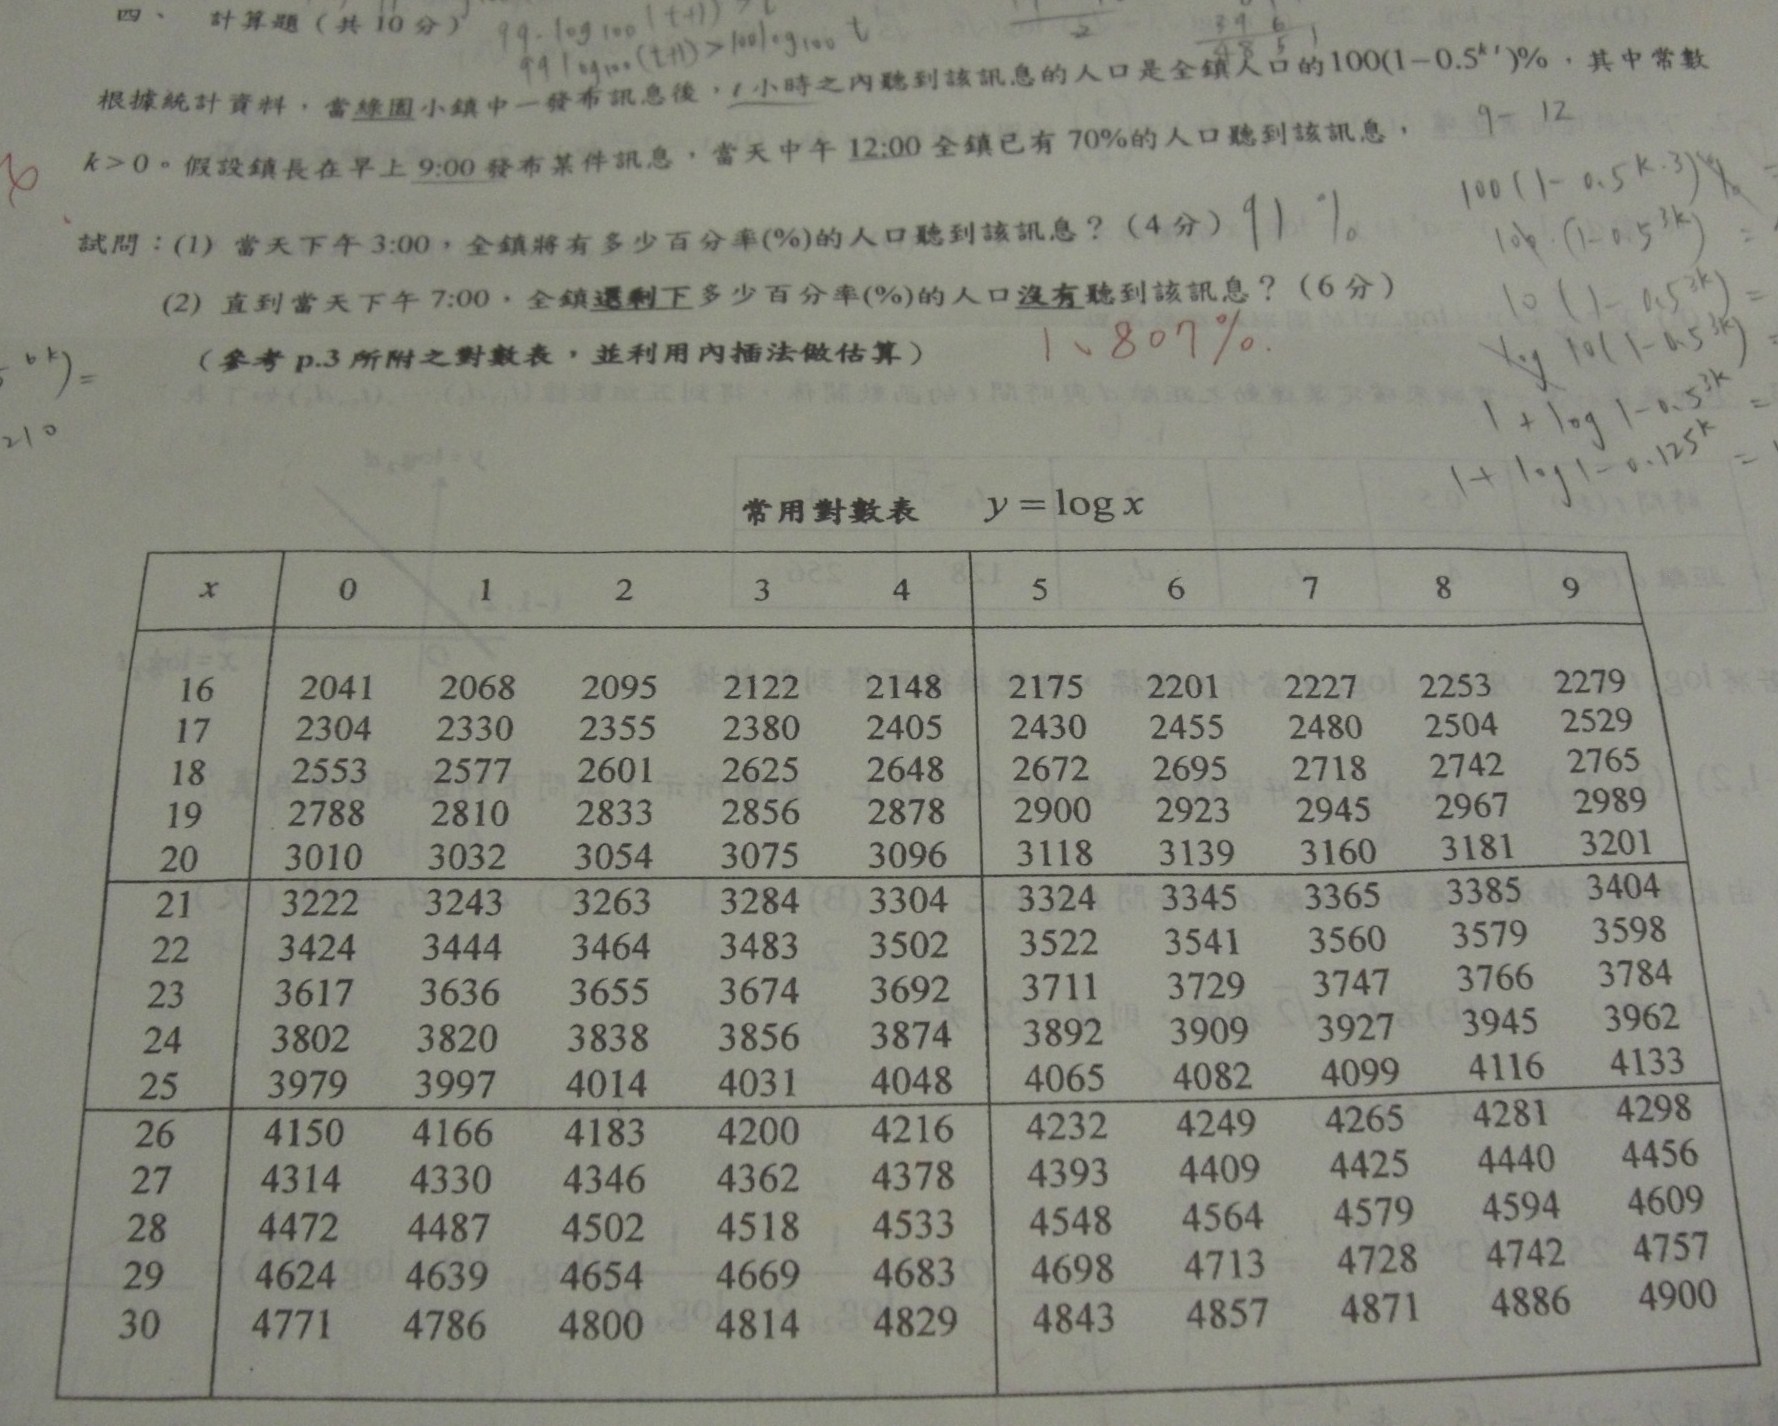 四、 計算題(共10分)
99·log100(t+1)>t
99log100(t+1)>100log100 t
根據統計資料,當綠園小鎮中一發布訊息後,t小時之內聽到該訊息的人口是全鎮人口的100(1-0.5^{kt})%,其中常數
k>0。假設鎮長在早上9:00發布某件訊息,當天中午12:00全鎮已有70%的人口聽到該訊息,
9- 12
100(1-0.5^{k·3})%
試問:(1) 當天下午3:00,全鎮將有多少百分率(%)的人口聽到該訊息?(4分) 91%
100·(1-0.5^{3k}) =
(2) 直到當天下午7:00,全鎮還剩下多少百分率(%)的人口沒有聽到該訊息?(6分)
10(1-0.5^{3k}) =
(參考p.3所附之對數表,並利用內插法做估算) 1、807%.
log 10(1-0.5^{3k}) =
1+log 1-0.5^{3k} =
1+log1-0.125^{k} =
210
常用對數表 y=log x
x 0 1 2 3 4 5 6 7 8 9
16 2041 2068 2095 2122 2148 2175 2201 2227 2253 2279
17 2304 2330 2355 2380 2405 2430 2455 2480 2504 2529
18 2553 2577 2601 2625 2648 2672 2695 2718 2742 2765
19 2788 2810 2833 2856 2878 2900 2923 2945 2967 2989
20 3010 3032 3054 3075 3096 3118 3139 3160 3181 3201
21 3222 3243 3263 3284 3304 3324 3345 3365 3385 3404
22 3424 3444 3464 3483 3502 3522 3541 3560 3579 3598
23 3617 3636 3655 3674 3692 3711 3729 3747 3766 3784
24 3802 3820 3838 3856 3874 3892 3909 3927 3945 3962
25 3979 3997 4014 4031 4048 4065 4082 4099 4116 4133
26 4150 4166 4183 4200 4216 4232 4249 4265 4281 4298
27 4314 4330 4346 4362 4378 4393 4409 4425 4440 4456
28 4472 4487 4502 4518 4533 4548 4564 4579 4594 4609
29 4624 4639 4654 4669 4683 4698 4713 4728 4742 4757
30 4771 4786 4800 4814 4829 4843 4857 4871 4886 4900